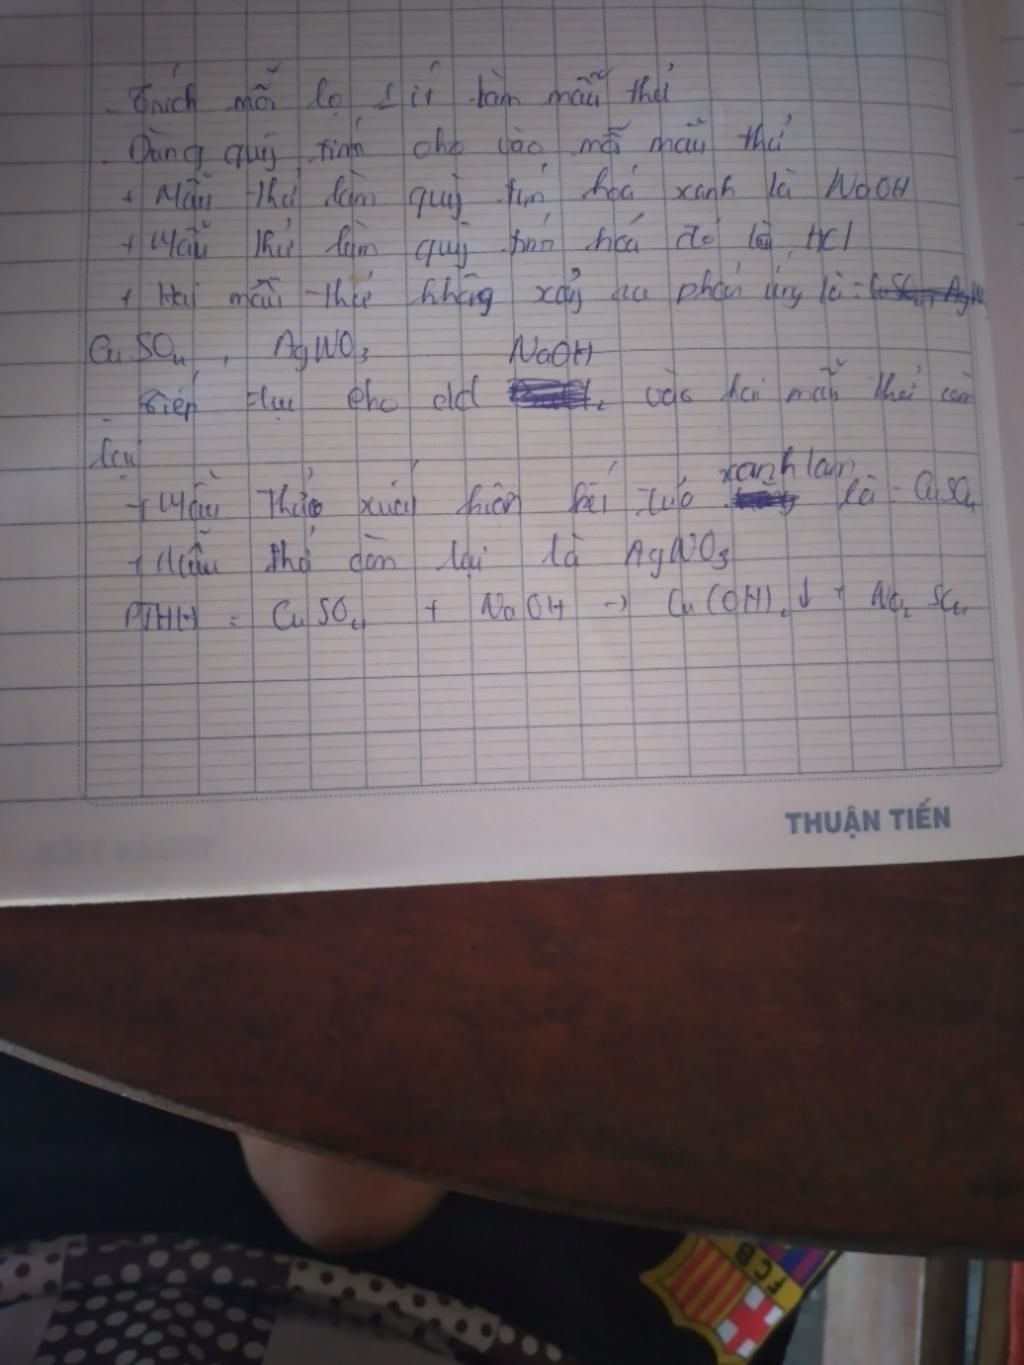 - Trích mỗi lọ 1 ít làm mẫu thử
- Dùng quỳ tím cho vào mỗi mẫu thử
+ Mẫu thử làm quỳ tím hoá xanh là NaOH
+ Mẫu thử làm quỳ tím hoá đỏ là HCl
+ Hai mẫu thử không xảy ra phản ứng là:
CuSO4, AgNO3
NaOH
- Tiếp tục cho dd vào hai mẫu thử còn
lại
xanh lam
+ Mẫu thử xuất hiện kết tủa là: CuSO4
+ Mẫu thử còn lại là AgNO3
PTHH: CuSO4 + NaOH → Cu(OH)2↓ + Na2SO4
THUẬN TIẾN
FCB